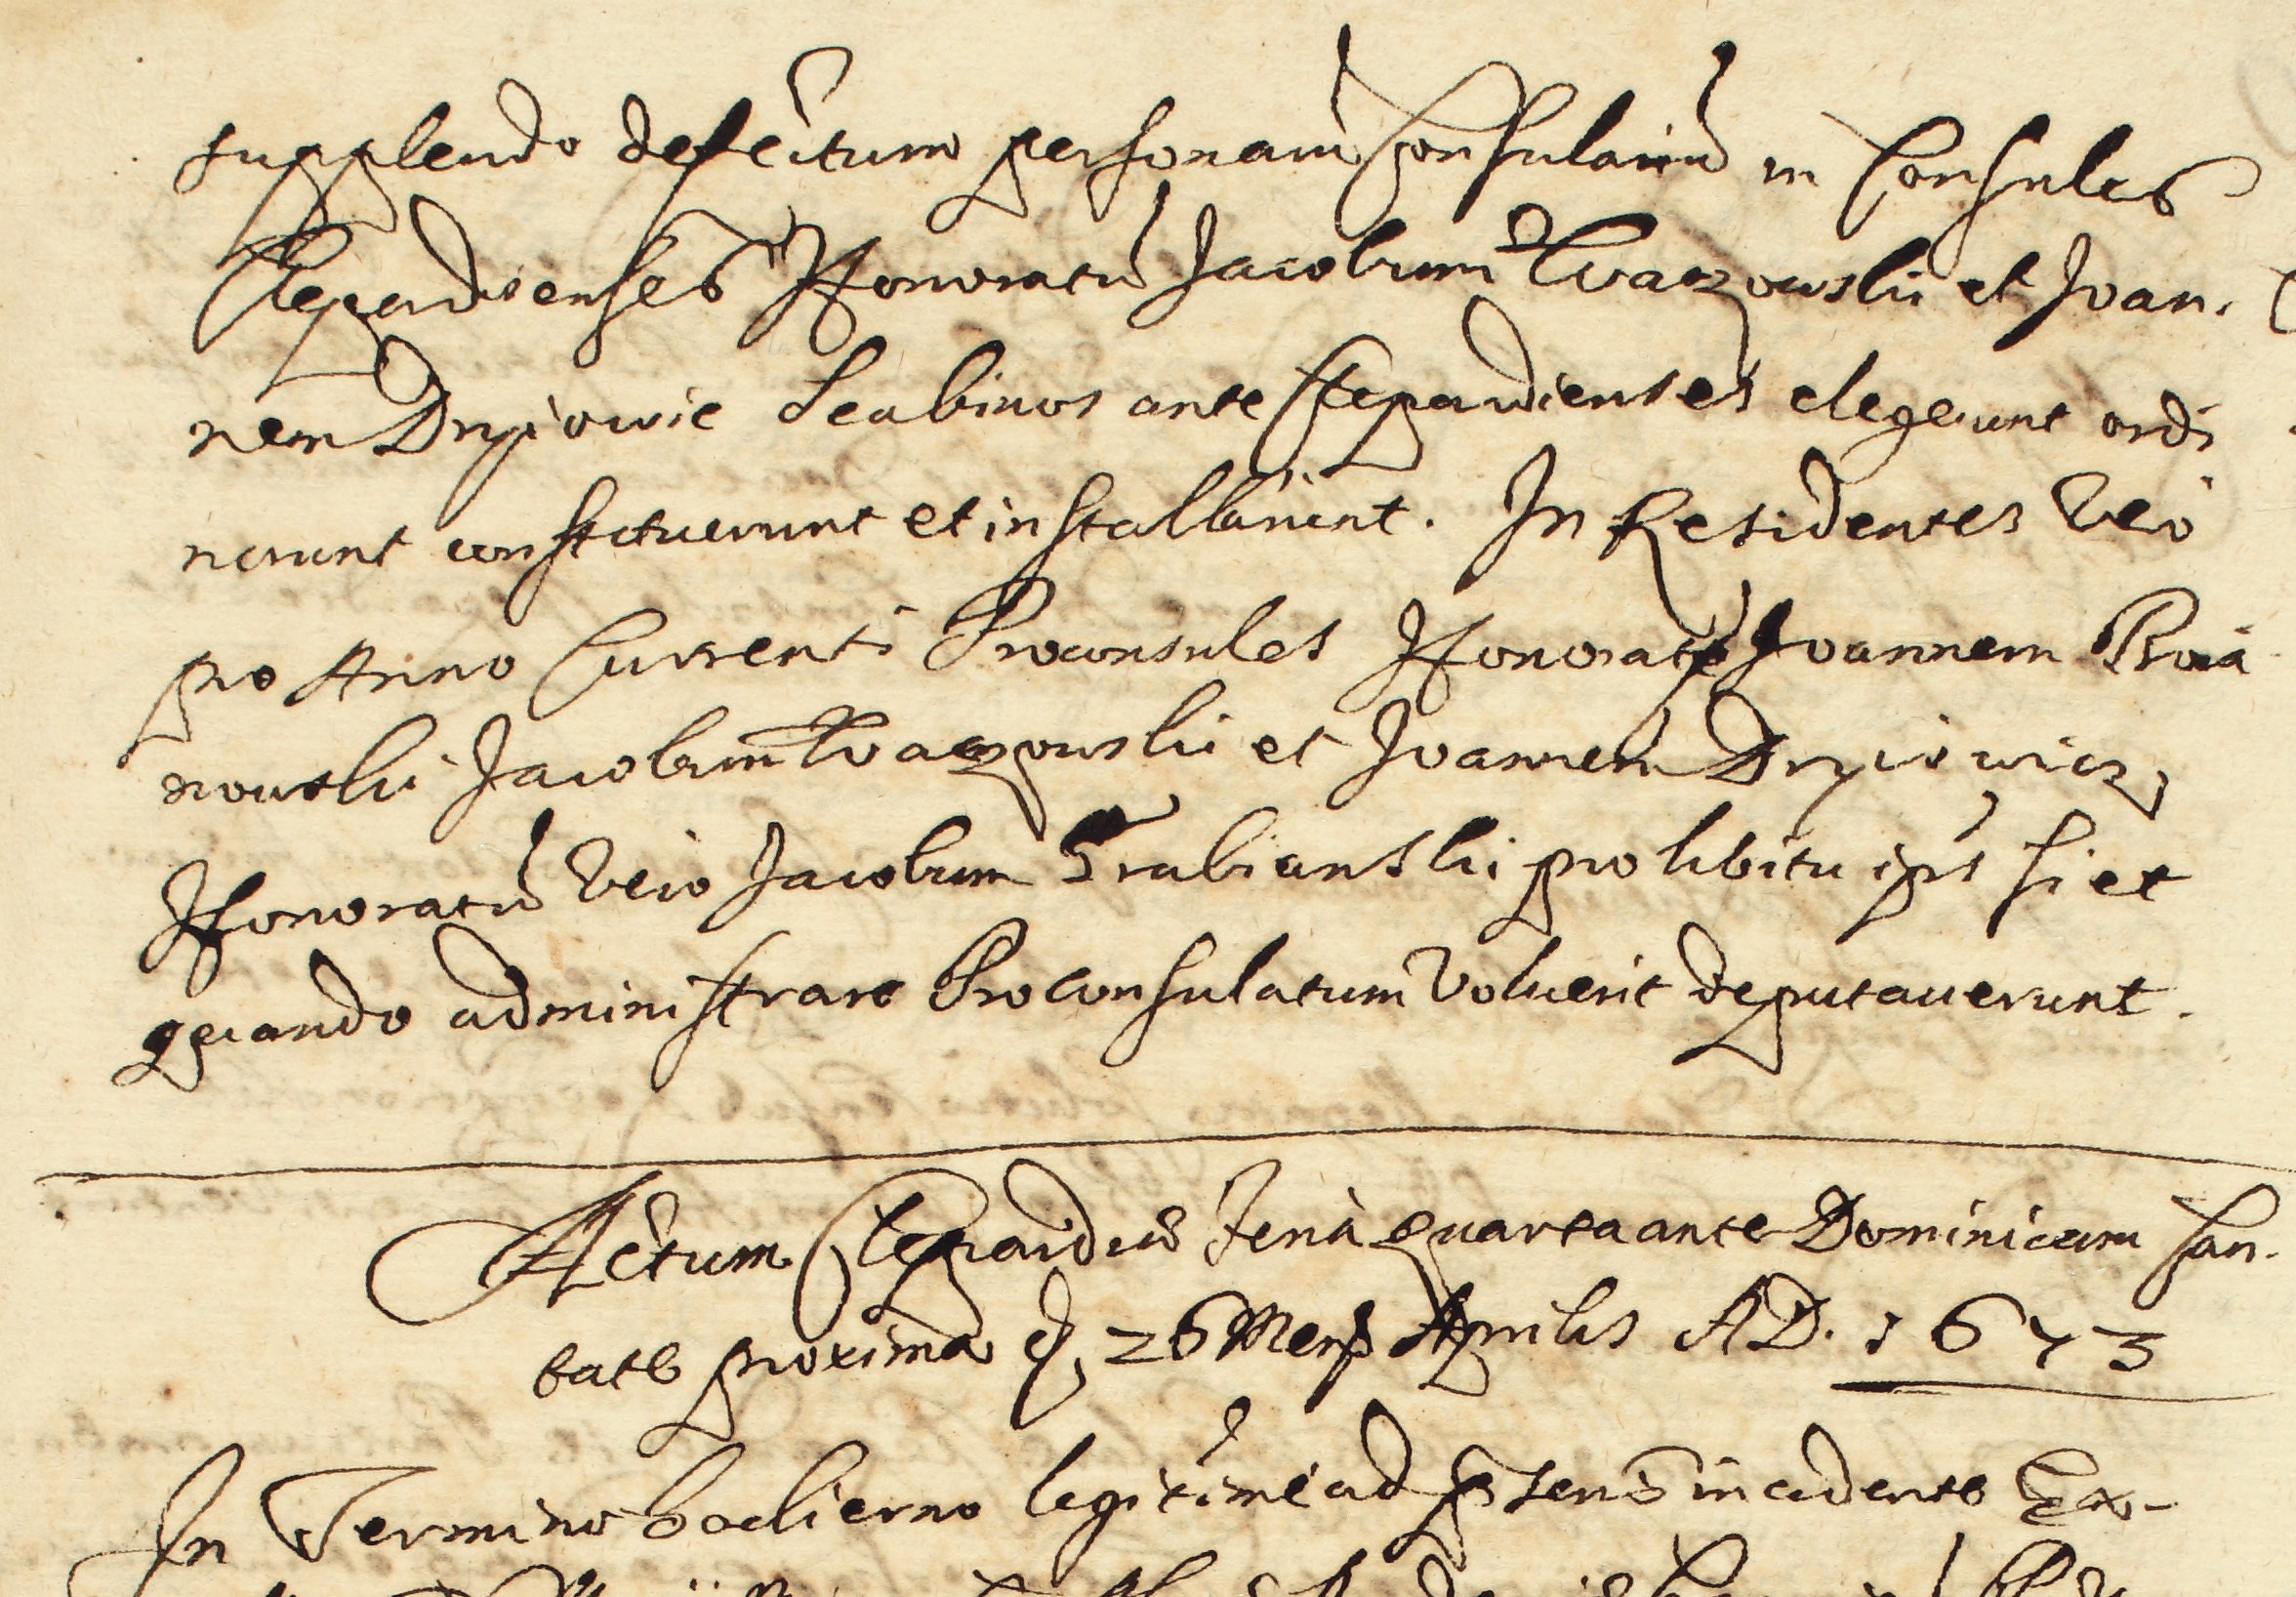 supplendo defectum personarũ Consulariũ in Consules
Clepardienses Honoratũ Jacobum Kwaczowski et Joan-
nem Dryiowic Scabinos ante Clepardienses elegerunt ordi
narunt constituerunt et installarunt. In Residentes vero
pro Anno Currenti Proconsules Honoratos Joannem
nowski Jacobum Kwaczowski et Joannem Dryiowicz,
Honoratũ vero Jacobum Grabianski pro libitu ips si et
quando administrare Proconsulatum voluerit deputaverunt.
Actum Clepardiæ feria quarta ante Dominicam Can-
tate proxima d. 26 Mens Aprilis AD. 1673
In Termino hodierno legitime ad pñsens incidente Ex-